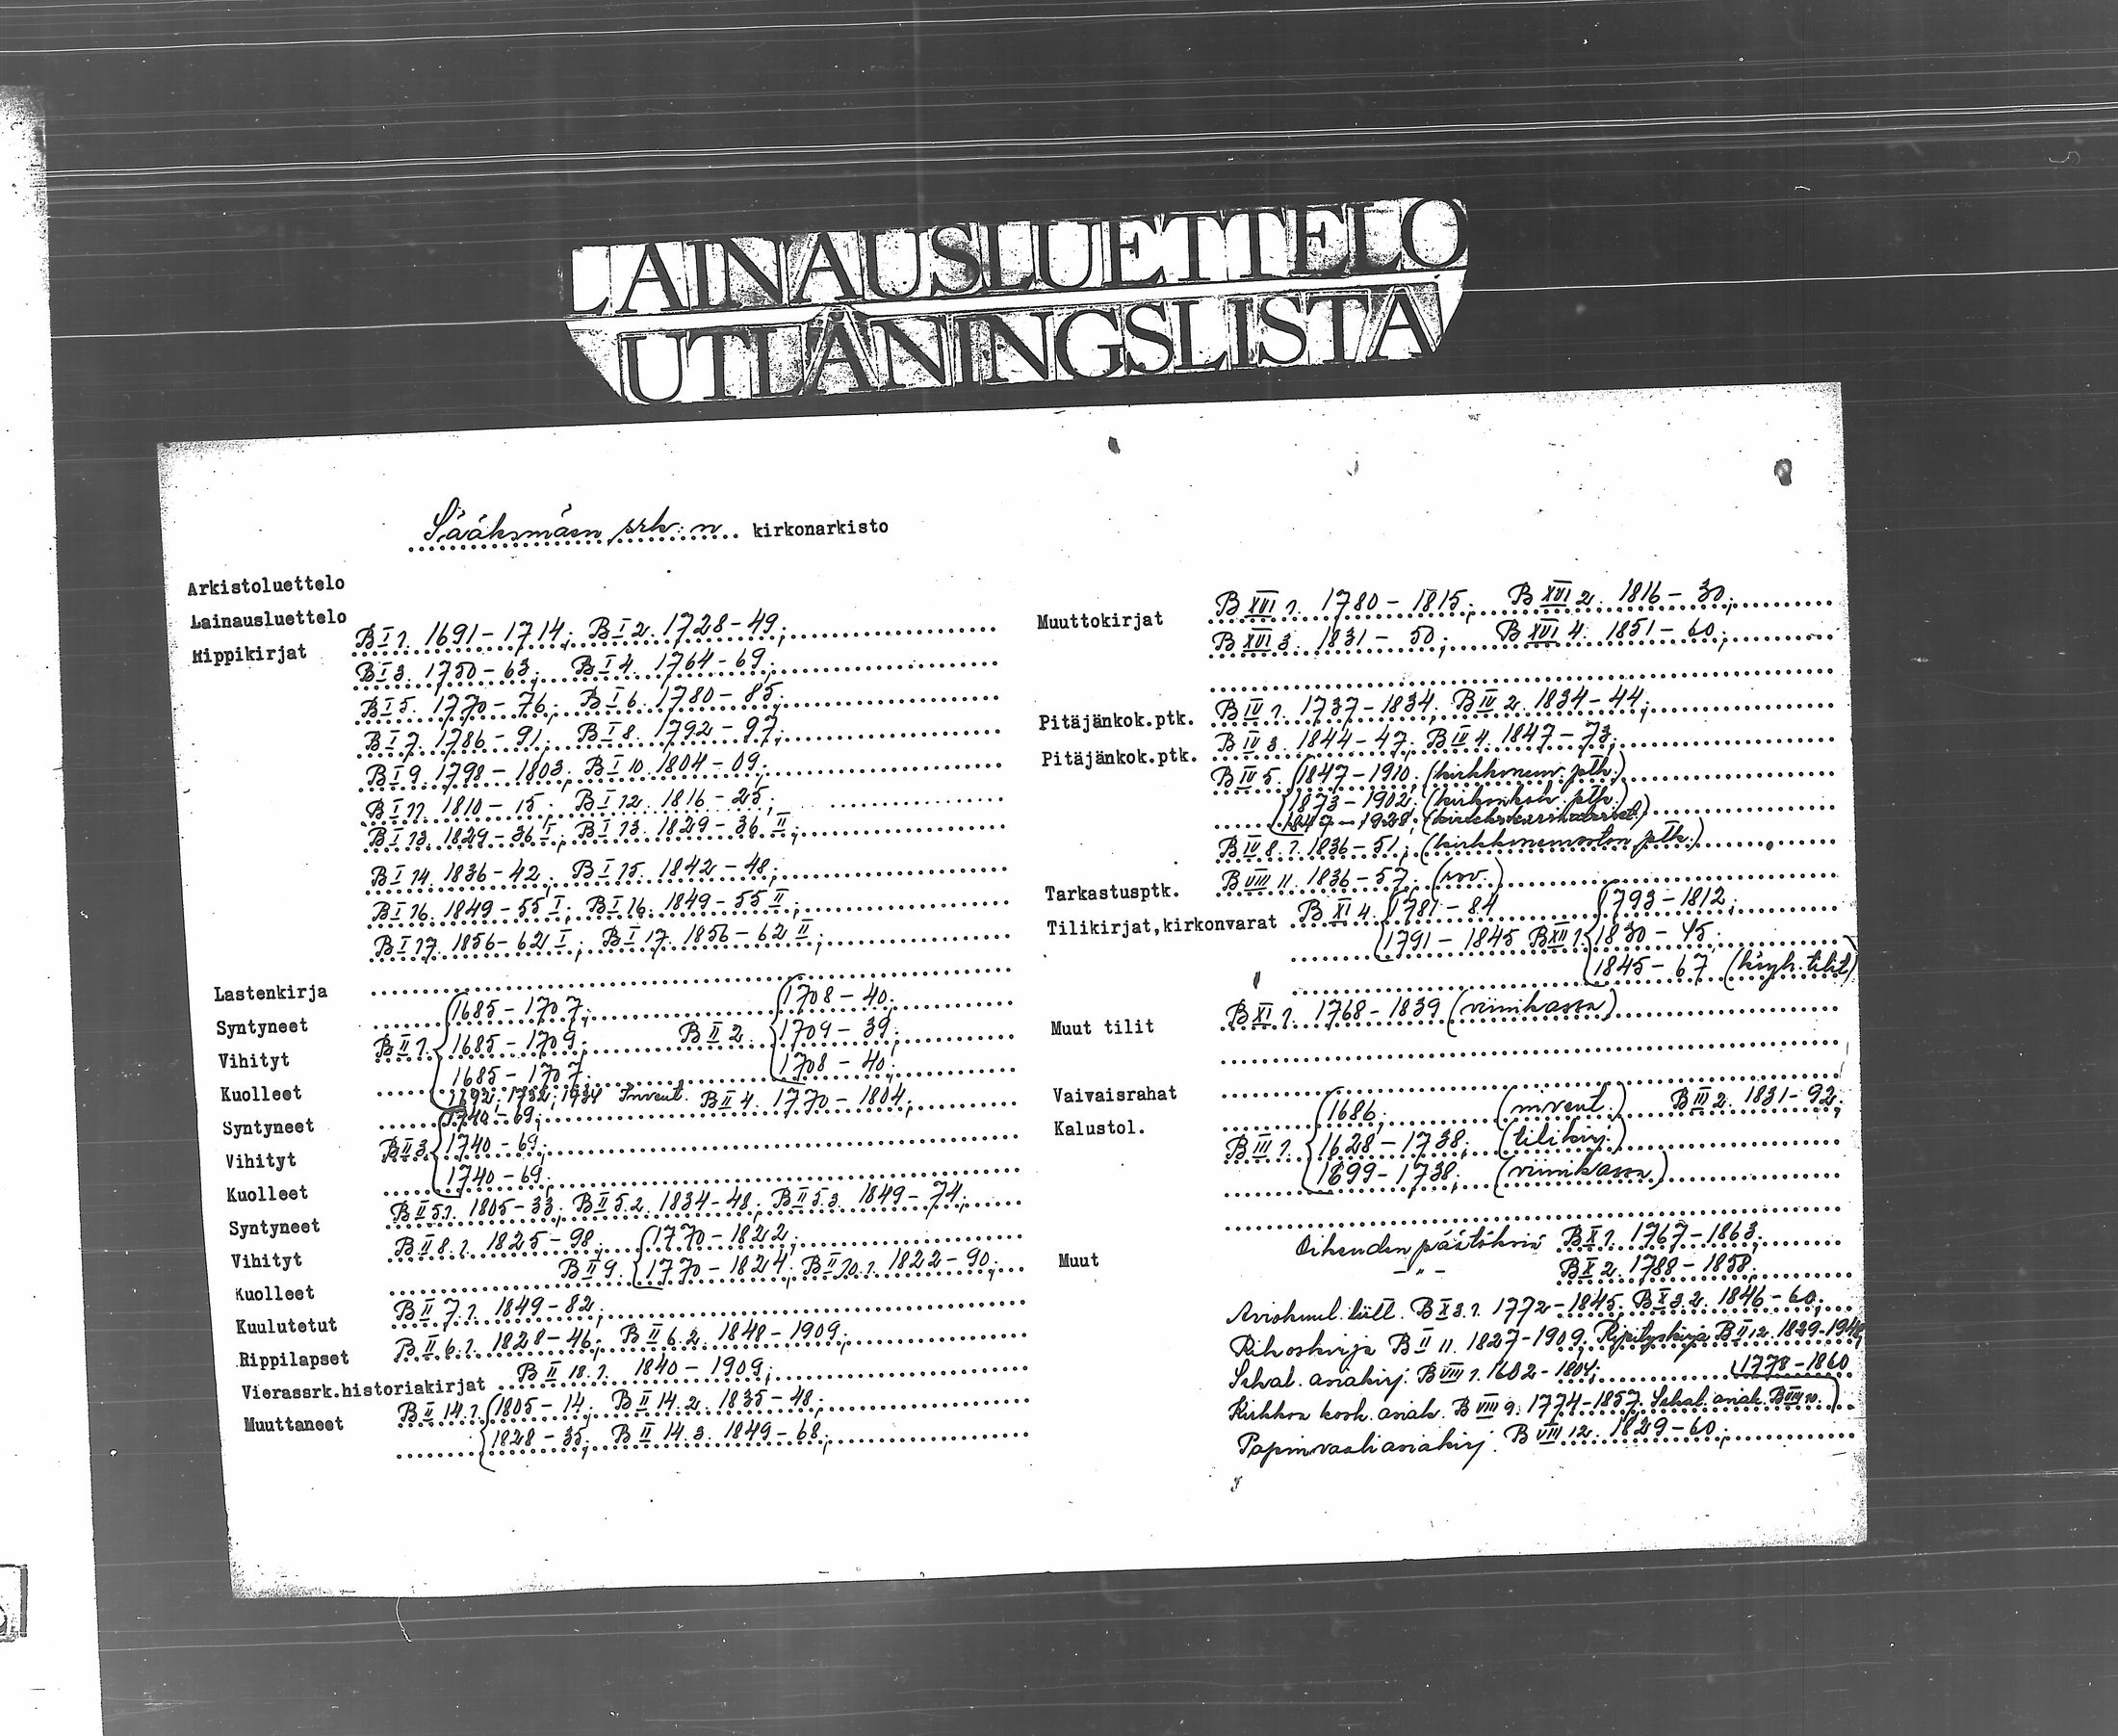 LAINAUSLUETTELO
UTLÅNINGSLISTA
Sääksmäen srk:n kirkonarkisto
Arkistoluettelo
Lainausluettelo
Rippikirjat B I 1. 1691-1714; B I 2. 1728-49;
B I 3. 1750-63; B I 4. 1764-69;
B I 5. 1770-76; B I 6. 1780-85;
B I 7. 1786-91; B I 8. 1792-97;
B I 9. 1798-1803; B I 10. 1804-09;
B I 11. 1810-15; B I 12. 1816-25;
B I 13. 1829-36 I; B I 13. 1829-36 II;
B I 14. 1836-42; B I 15. 1842-48;
B I 16. 1849-55 I; B I 16. 1849-55 II;
B I 17. 1856-62 I; B I 17. 1856-62 II;
Lastenkirja
Syntyneet 1685-1707; 1708-40;
Vihityt B II 1. 1685-1709; B II 2. 1709-39;
Kuolleet 1685-1707; 1708-40;
1732, 1734 Invent. B II 4. 1770-1804;
Syntyneet 1740-69;
Vihityt B II 3. 1740-69;
Kuolleet 1740-69;
Syntyneet B II 5.1. 1805-33; B II 5.2. 1834-48; B II 5.3. 1849-74;
Vihityt B II 8.1. 1825-98; 1770-1822;
Kuolleet B II 9. 1770-1824; B II 10.1. 1822-90;
Kuulutetut B II 7.1. 1849-82;
Rippilapset B II 6.1. 1828-46; B II 6.2. 1848-1909;
Vierassrk.historiakirjat B II 18.1. 1840-1909;
Muuttaneet B II 14.1. 1805-14; B II 14.2. 1835-48;
1828-35; B II 14.3. 1849-68;
Muuttokirjat B XVI 1. 1780-1815; B XVI 2. 1816-30;
B XVI 3. 1831-50; B XVI 4. 1851-60;
Pitäjänkok.ptk. B IV 1. 1737-1834; B IV 2. 1834-44;
Pitäjänkok.ptk. B IV 3. 1844-47; B IV 4. 1847-73;
B IV 5. 1847-1910; (kirkkoneuv. ptk.)
1873-1902; (kirkonkok. ptk.)
1847-1928;
B IV 8.1. 1836-51; (kirkkoneuvoston ptk.)
Tarkastusptk. B VIII 11. 1836-57; (rov.)
Tilikirjat,kirkonvarat B XI 4. 1781-84 1793-1812;
1791-1845 B XII 1. 1830-45;
1845-67 (köyh. tilit)
Muut tilit B XI 1. 1768-1839 (viinikassa)
Vaivaisrahat
Kalustol. 1686; (invent.) B III 2. 1831-92;
B III 1. 1628-1738; (tilikirj.)
1699-1738; (viinikassa)
Muut Oikeuden päätöksiä B X 1. 1767-1863;
- " - B X 2. 1788-1858;
Aviokuul. luett. B X 3.1. 1772-1845; B X 3.2. 1846-60;
Rikoskirja B II 11. 1827-1909; Ripityskirja B II 12. 1829-1948;
Sekal. asiakirj. B VIII 1. 1602-1804; 1778-1860
Kirkkoa kosk. asiak. B VIII 9. 1774-1857. Sekal. asiak. B VIII 10.
Papinvaaliasiakirj. B VIII 12. 1829-60;